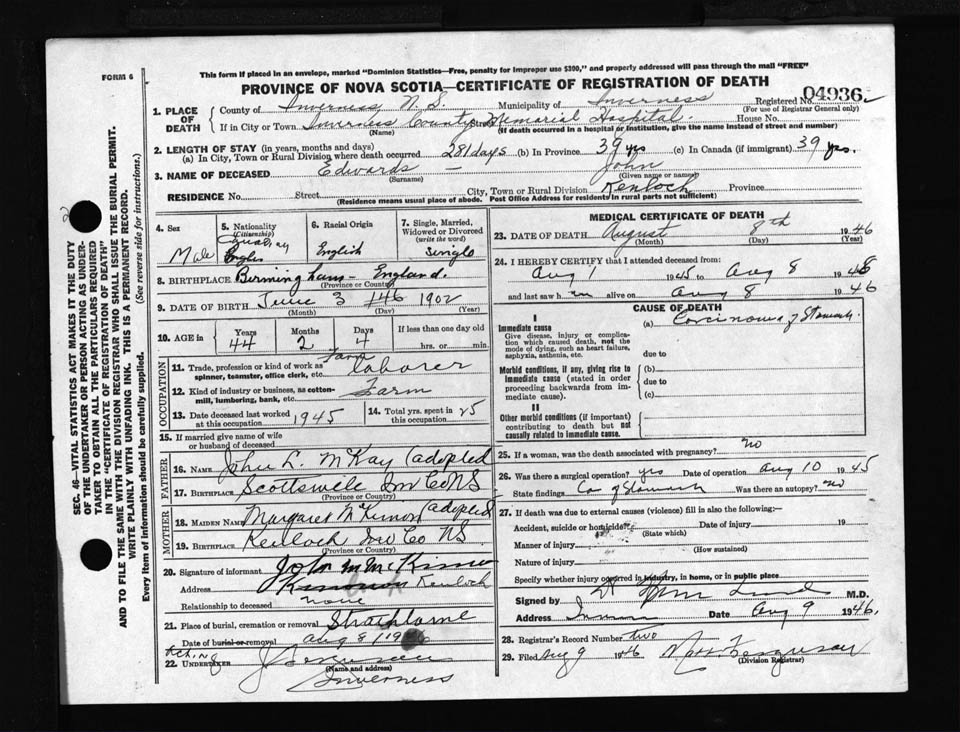 FORM 6
This form if placed in an envelope, marked "Dominion Statistics—Free, penalty for improper use $300," and properly addressed will pass through the mail "FREE"
PROVINCE OF NOVA SCOTIA—CERTIFICATE OF REGISTRATION OF DEATH
Registered No. 04936
(For use of Registrar General only)
1. PLACE OF DEATH
County of Inverness, N.S. Municipality of Inverness
If in City or Town Inverness County Memorial Hospital. House No.
(Name) (If death occurred in a hospital or institution, give the name instead of street and number)
2. LENGTH OF STAY (in years, months and days)
(a) In City, Town or Rural Division where death occurred 281 days (b) In Province 39 yrs (c) In Canada (if immigrant) 39 yrs.
3. NAME OF DECEASED Edwards – John
(Surname) (Given name or names)
RESIDENCE No. Street City, Town or Rural Division Kenloch Province
(Residence means usual place of abode. Post Office Address for residents in rural parts not sufficient)
4. Sex Male
5. Nationality (Citizenship)
6. Racial Origin English
7. Single, Married, Widowed or Divorced (write the word) single
8. BIRTHPLACE Birmingham – England.
(Province or Country)
9. DATE OF BIRTH June 3 1902
(Month) (Day) (Year)
10. AGE in Years 44 Months 2 Days 4 If less than one day old hrs. or min.
OCCUPATION
11. Trade, profession or kind of work as spinner, teamster, office clerk, etc. Farm laborer
12. Kind of industry or business, as cotton-mill, lumbering, bank, etc. Farm
13. Date deceased last worked at this occupation 1945
14. Total yrs. spent in this occupation 25
15. If married give name of wife or husband of deceased
FATHER
16. NAME John L. McKay (adopted
17. Birthplace Scottsville Inv Co NS
(Province or Country)
MOTHER
18. MAIDEN NAME Margaret McKinnon (adopted
19. Birthplace Kenloch Inv Co NS.
(Province or Country)
20. Signature of informant John M McKinnon
Address Kenloch
Relationship to deceased none
21. Place of burial, cremation or removal Strathlorne
Date of burial or removal Aug 8
22. UNDERTAKER Acting
(Name and address)
Inverness
MEDICAL CERTIFICATE OF DEATH
23. DATE OF DEATH August 8th 1946
(Month) (Day) (Year)
24. I HEREBY CERTIFY that I attended deceased from:
Aug 1 1945 to Aug 8 1946
and last saw him alive on Aug 8 1946
CAUSE OF DEATH
I
Immediate cause
Give disease, injury or complication which caused death, not the mode of dying, such as heart failure, asphyxia, asthenia, etc.
(a) Carcinoma of Stomach
due to
Morbid conditions, if any, giving rise to immediate cause (stated in order proceeding backwards from immediate cause).
(b)
due to
(c)
II
Other morbid conditions (if important) contributing to death but not causally related to immediate cause.
25. If a woman, was the death associated with pregnancy? no
26. Was there a surgical operation? yes Date of operation Aug 10 1945
State findings Ca of Stomach Was there an autopsy? no
27. If death was due to external causes (violence) fill in also the following:—
Accident, suicide or homicide? Date of injury 19
(State which)
Manner of injury
(How sustained)
Nature of injury
Specify whether injury occurred in industry, in home, or in public place
Signed by M.D.
Address Date Aug 9 1946.
28. Registrar's Record Number two
29. Filed Aug 9 1946 Ferguson
(Division Registrar)
SEC. 46—VITAL STATISTICS ACT MAKES IT THE DUTY
OF THE UNDERTAKER OR PERSON ACTING AS UNDER-
TAKER TO OBTAIN ALL THE PARTICULARS REQUIRED
IN THE "CERTIFICATE OF REGISTRATION OF DEATH"
AND TO FILE THE SAME WITH THE DIVISION REGISTRAR WHO SHALL ISSUE THE BURIAL PERMIT.
WRITE PLAINLY WITH UNFADING INK. THIS IS A PERMANENT RECORD.
Every item of information should be carefully supplied. (See reverse side for instructions.)